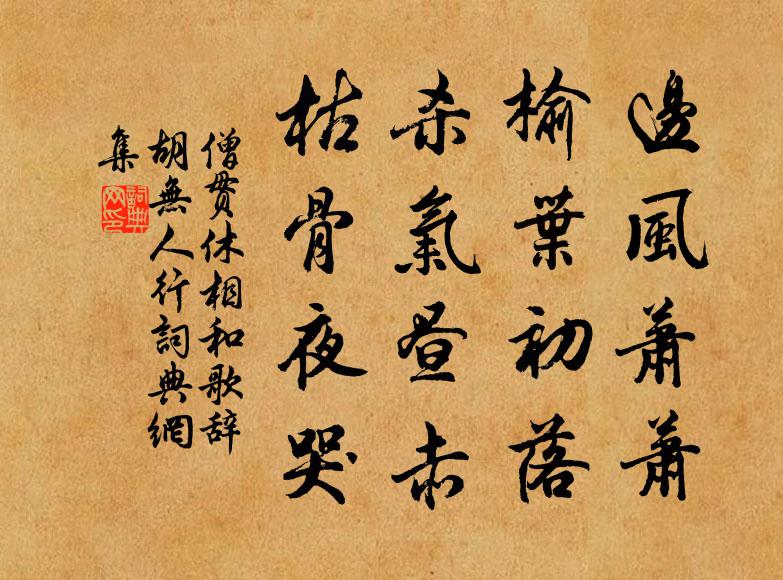 邊風蕭蕭
榆葉初落
殺氣晝赤
枯骨夜哭
僧貫休相和歌辞
胡無人行詞典網
集
詞典
网印